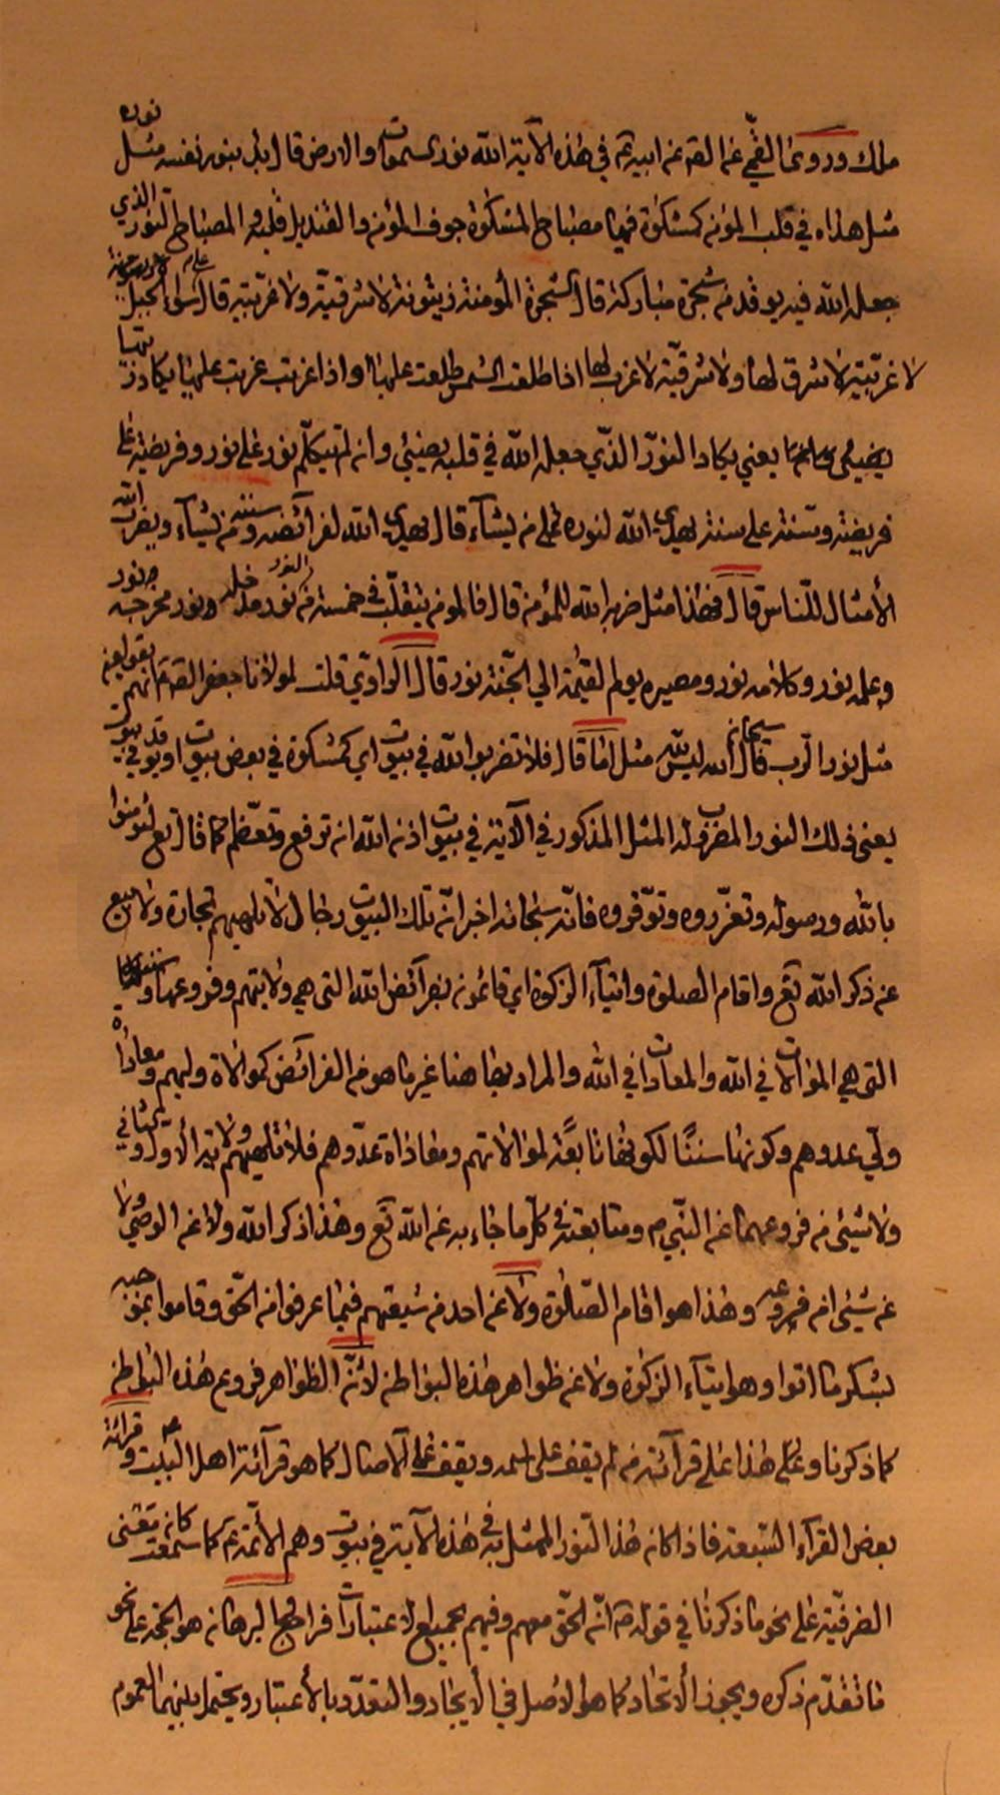 ملك وروى القمي عن الصم عن ابيه ع في هذه الآية الله نور السموات والارض قال بدأ بنور نفسه مثل نوره
مثل هذاه في قلب المؤمن كمشكوة فيها مصباح المشكوة جوف المؤمن والقنديل قلبه والمصباح النور الذي
جعله الله فيه يوقد من شجرة مباركة قال الشجرة المؤمن زيتونة لا شرقية ولا غربية قال على سواء الجبل
لا غربية لا شرق لها ولا شرقية لا غرب لها اذا طلعت الشمس طلعت عليها واذا غربت غربت عليها يكاد زيتها
يضيئ يعني يكاد النور الذي جعله الله في قلبه يضيئ وان لم يتكلم نور على نور وفريضة على
فريضة وسنة على سنة يهدي الله لنوره من يشآء قال يهدي الله لفرآئضه وسننه من يشآء ويضرب الله
الأمثال للناس قال فهذا مثل ضربه الله للمؤمن قال فالمؤمن يتقلب في خمسة من النور مدخله نور ومخرجه نور
وعلمه نور وكلامه نور ومصيره يوم القيمة الى الجنة نور قال الراوي قلت لمولانا جعفر الصم انهم يقولون
مثل نور الرب قال سبحان الله ليس لله مثل اما قال فلا تضربوا الله في بيوت اي كمشكوة في بعض بيوت او يوقد في بيوت
يعني ذلك النور المضروب له المثل المذكور في الآية في بيوت اذن الله ان ترفع وتعظم كما قال تع لتؤمنوا
بالله ورسوله وتعزروه وتوقروه فانه سبحانه اخبر ان تلك البيوت رجال لا تلهيهم تجارة ولا بيع
عن ذكر الله تع واقام الصلوة وايتآء الزكوة اي قائمون بفرآئض الله التي هي ولايتهم وفروعها وسننها
التي هي الموالات في الله والمعادات في الله والمراد بها هنا غير ما هو من الفرائض كموالاة وليهم ومعاداة
ولي عدوهم وكونها سننا لكونها تابعة لموالاتهم ومعاداة عدوهم فلا تلهيهم ولاية الأول والثاني
ولا شيئ من فروعهما عن النبي ص ومتابعته في كل ما جاء به عن الله تع وهذا ذكر الله ولا عن الوصي ولا
عن شيئ من فروعه وهذا هو اقام الصلوة ولا عن احد من شيعتهم فيما عرفوا من الحق وقاموا بموجبه
بشكر ما اتوا وهو ايتآء الزكوة ولا عن ظواهر هذه البواطن لأن الظواهر فروع هذه البواطن
كما ذكرنا وعلى هذا على قرآئة من لم يقف على اسمه ويقف على الآصال كما هو قرآئة اهل البيت ع وقرائة
بعض القرآء السبعة فاذا كان هذا النور الممثل به في هذه الآية في بيوت وهم الأئمة ع كما سمعت كان معنى
الظرفية على نحو ما ذكرنا في قوله ع ان الحق معهم وفيهم بجميع الاعتبارات فراجع البرهان هو الحجة على نحو
ما تقدم ذكره ويجوز الأتحاد كما هو الاصل في الأيجاد والتعدد بالأعتبار ويحتمل بينهما العموم